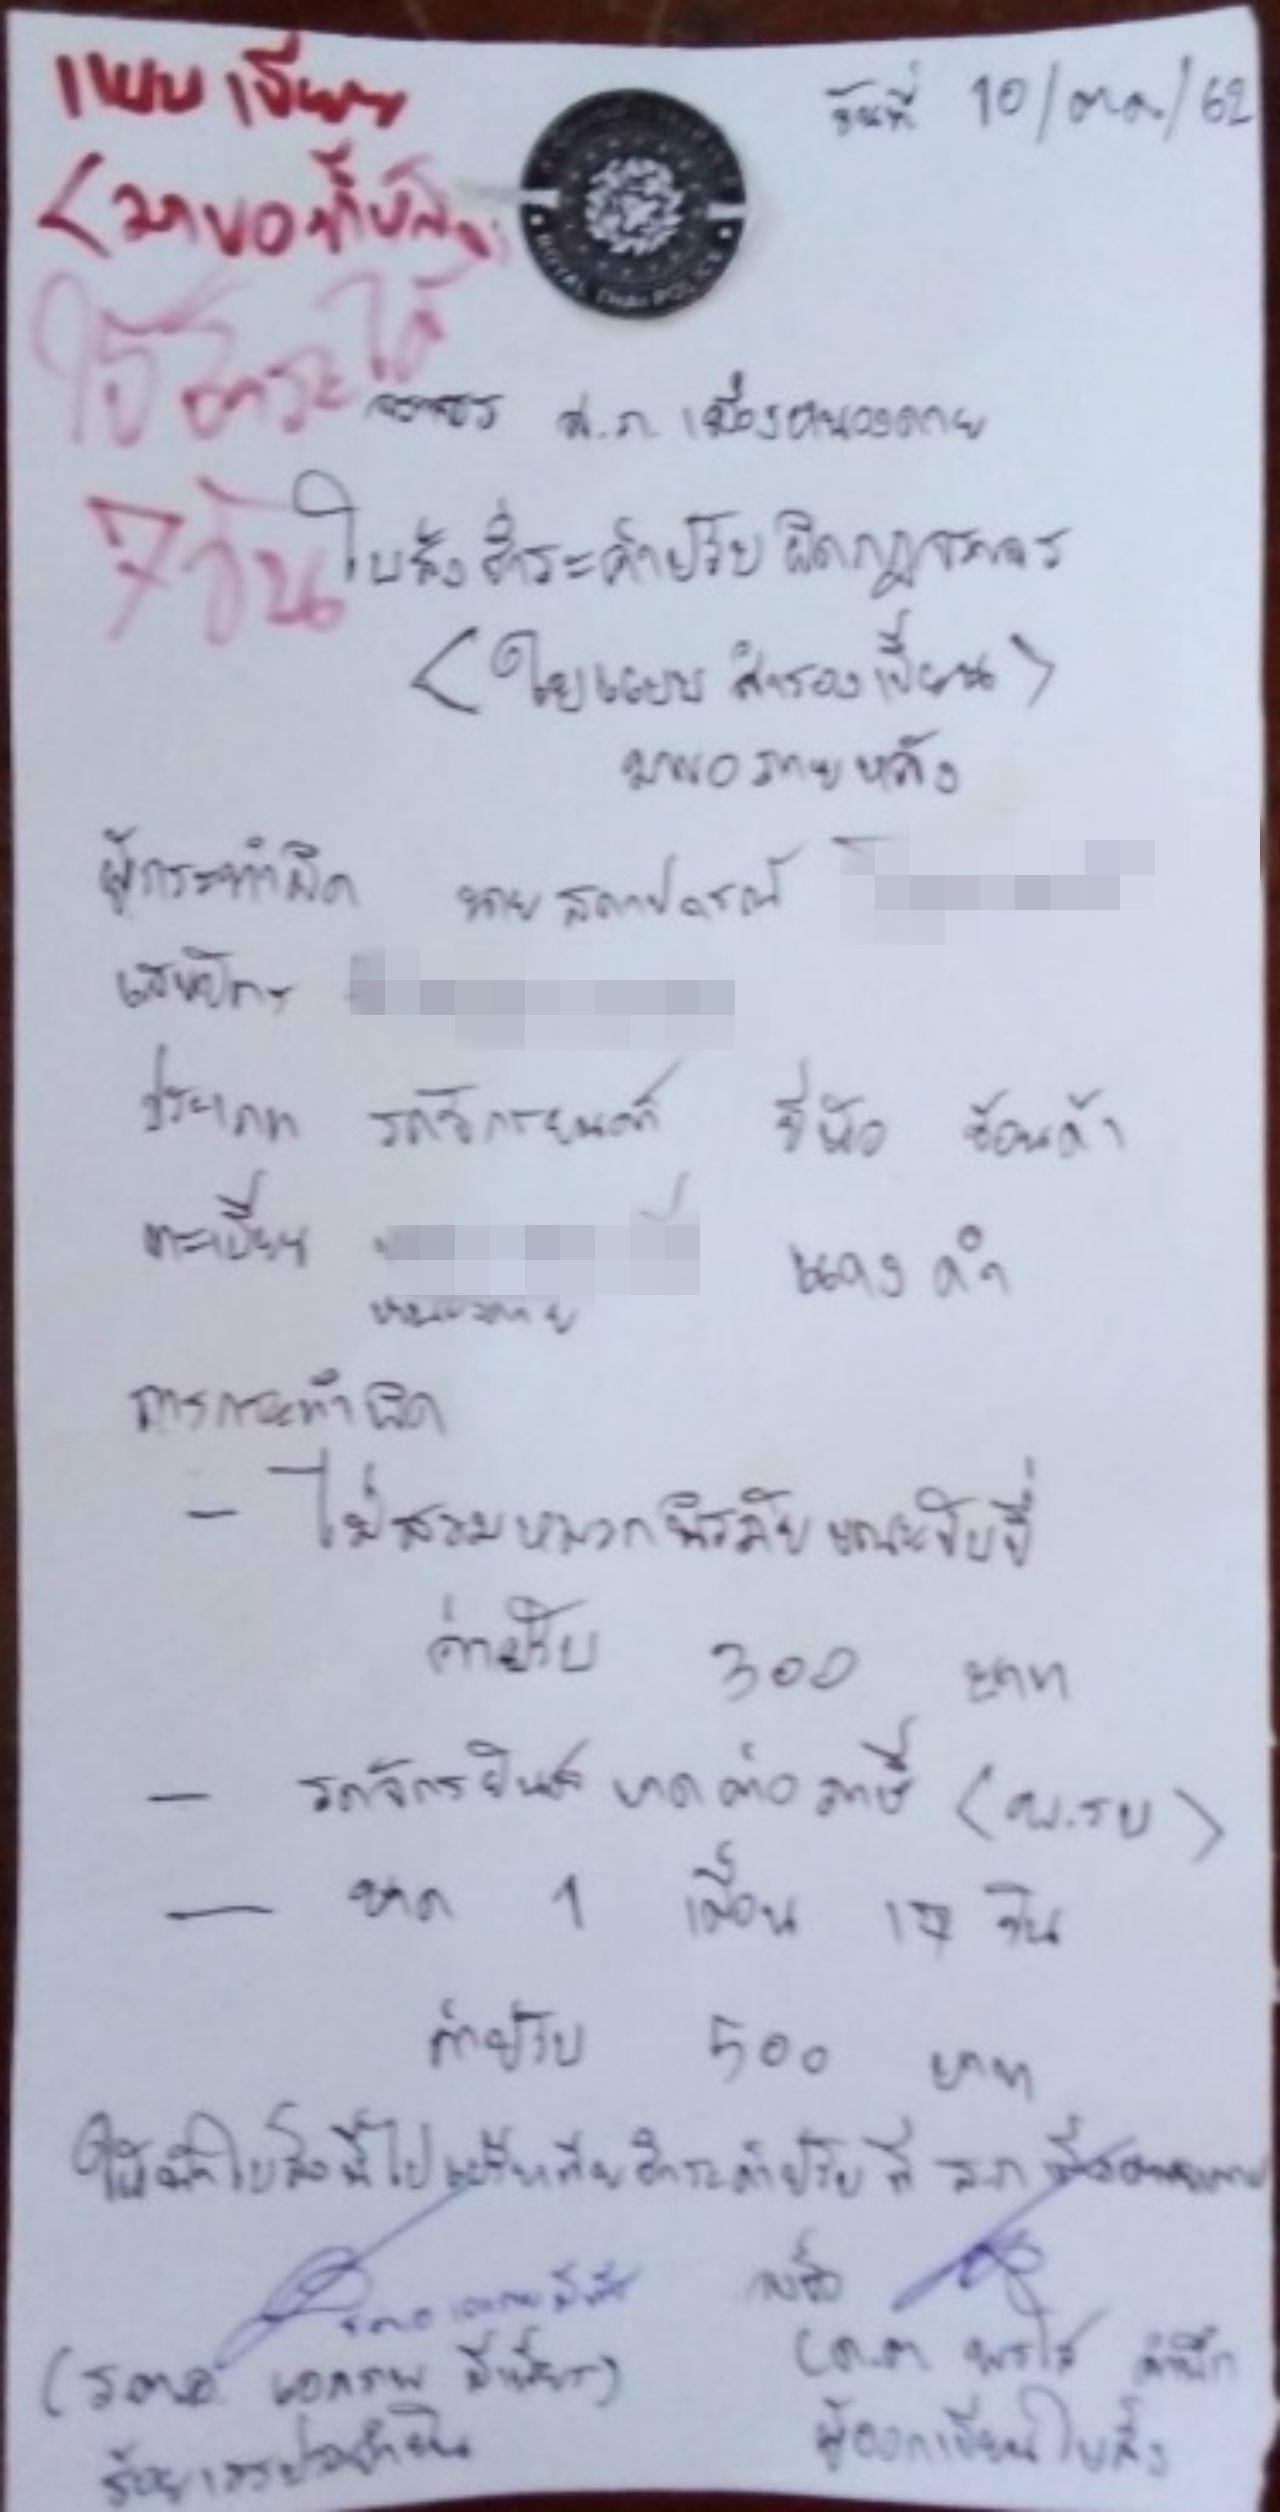 แบบเขียน
วันที่ 10/ต.ค./62
(มาขอที่หลัง
ROYAL THAI POLICE
ใช้ชำระได้
จราจร ส.ภ. เมืองหนองคาย
7 วัน
ใบสั่งชำระค่าปรับผิดกฎจราจร
(ใบแบบสำรองเขียน)
มาขอภายหลัง
ผู้กระทำผิด นาย
เลขบัตร
ประเภท รถจักรยนต์ ยี่ห้อ ฮ้อนด้า
ทะเบียน แดงดำ
หนองคาย
การกระทำผิด
- ไม่สวมหมวกนิรภัยขณะขับขี่
ค่าปรับ 300 บาท
- รถจักรยนต์ ขาดต่อภาษี (พ.รบ)
- ขาด 1 เดือน 17 วัน
ค่าปรับ 500 บาท
ให้นำใบสั่งนี้ไปเปรียบเทียบชำระค่าปรับที่ ส.ภ
ลงชื่อ
(ร.ต.อ. เอกภพ
(ด.ต.
ร้อยเวรประจำวัน
ผู้ออกเขียนใบสั่ง